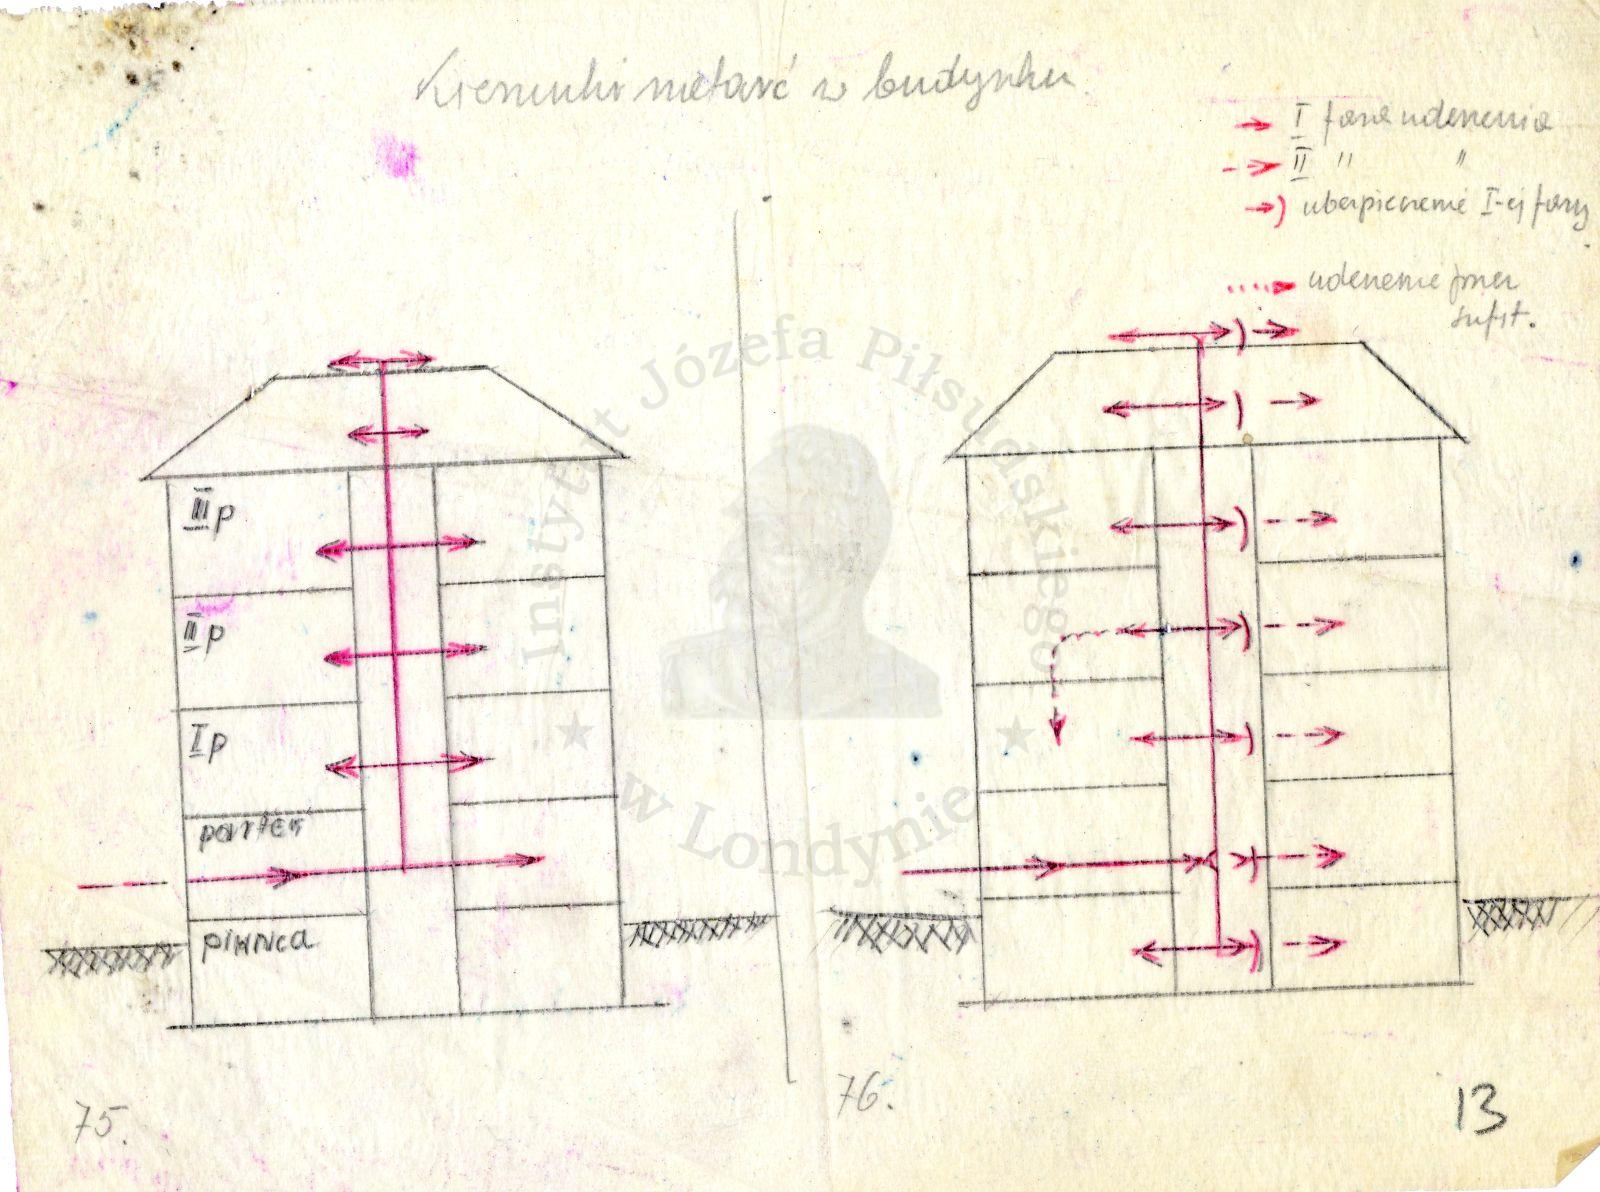 Kierunki natarć w budynku
I faza uderzenia
II " "
ubezpieczenie I-ej fazy
uderzenie przez
sufit.
Instytut Józefa Piłsudskiego
w Londynie
III p
II p
I p
parter
piwnica
75.
76.
13